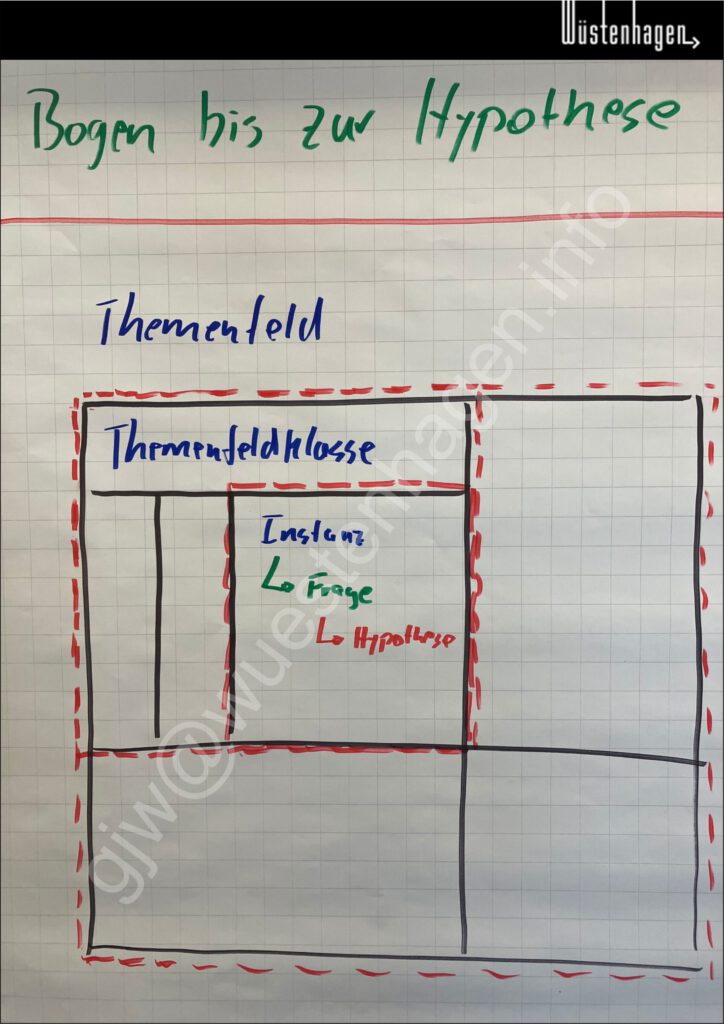 Wüstenhagen
Bogen bis zur Hypothese
Themenfeld
Themenfeldklasse
Instanz
↳ Frage
↳ Hypothese
gjw@wuestenhagen.info